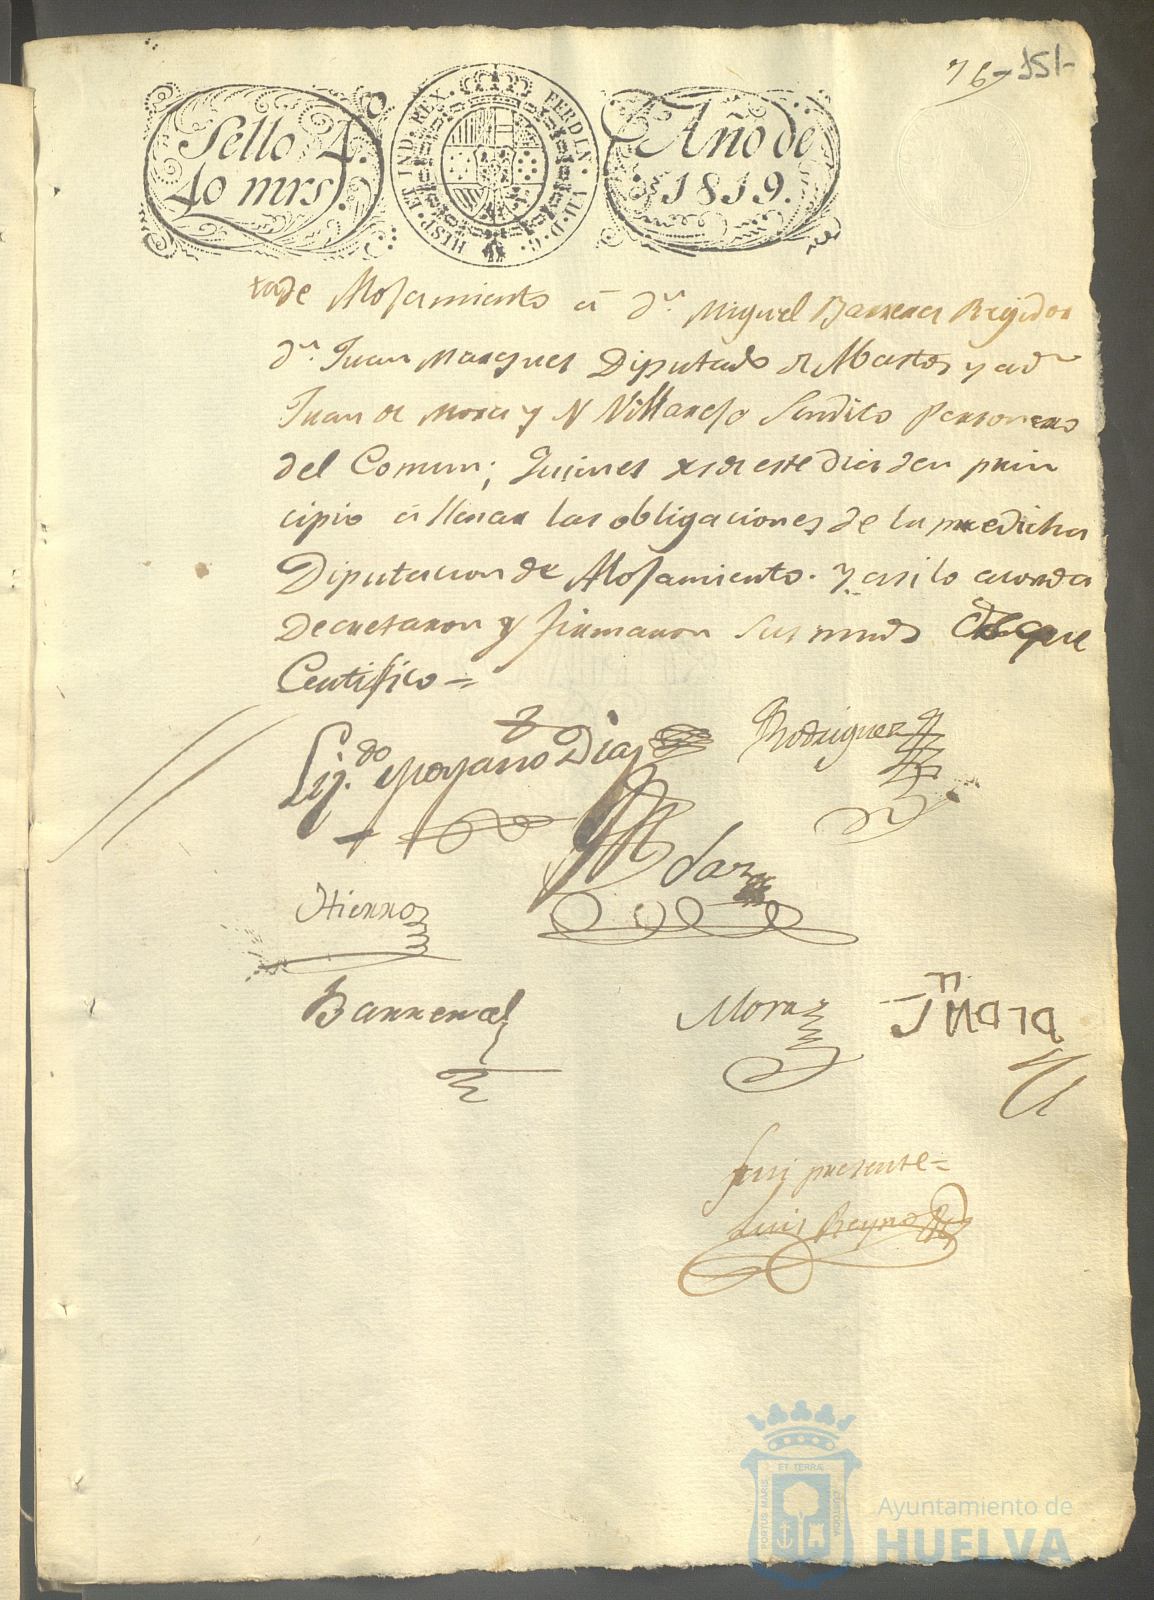 76
151
Sello 4.
40 mrs.
HISP. ET IND. REX. FERDIN. VII. D. G.
Año de
1819.
de Alojamiento á Dn. Miguel Barrera Regidor
Dn. Juan Marquez Diputado de Abastos y a Dn
Juan de Mora y N Villarejo Sindico Personero
del Comun; Quienes desde este dia den prin
cipio á llenar las obligaciones de la predicha
Diputacion de Alojamiento. y asi lo acorda
Decretaron y firmaron sus mrds que
Certifico=
Lij.do Moyano Diaz
Rodriguez
Hierro
Barrera
Mora
fui presente=
Luis Reyno
ET TERRÆ
PORTUS MARIS
CUSTODIA
Ayuntamiento de
HUELVA